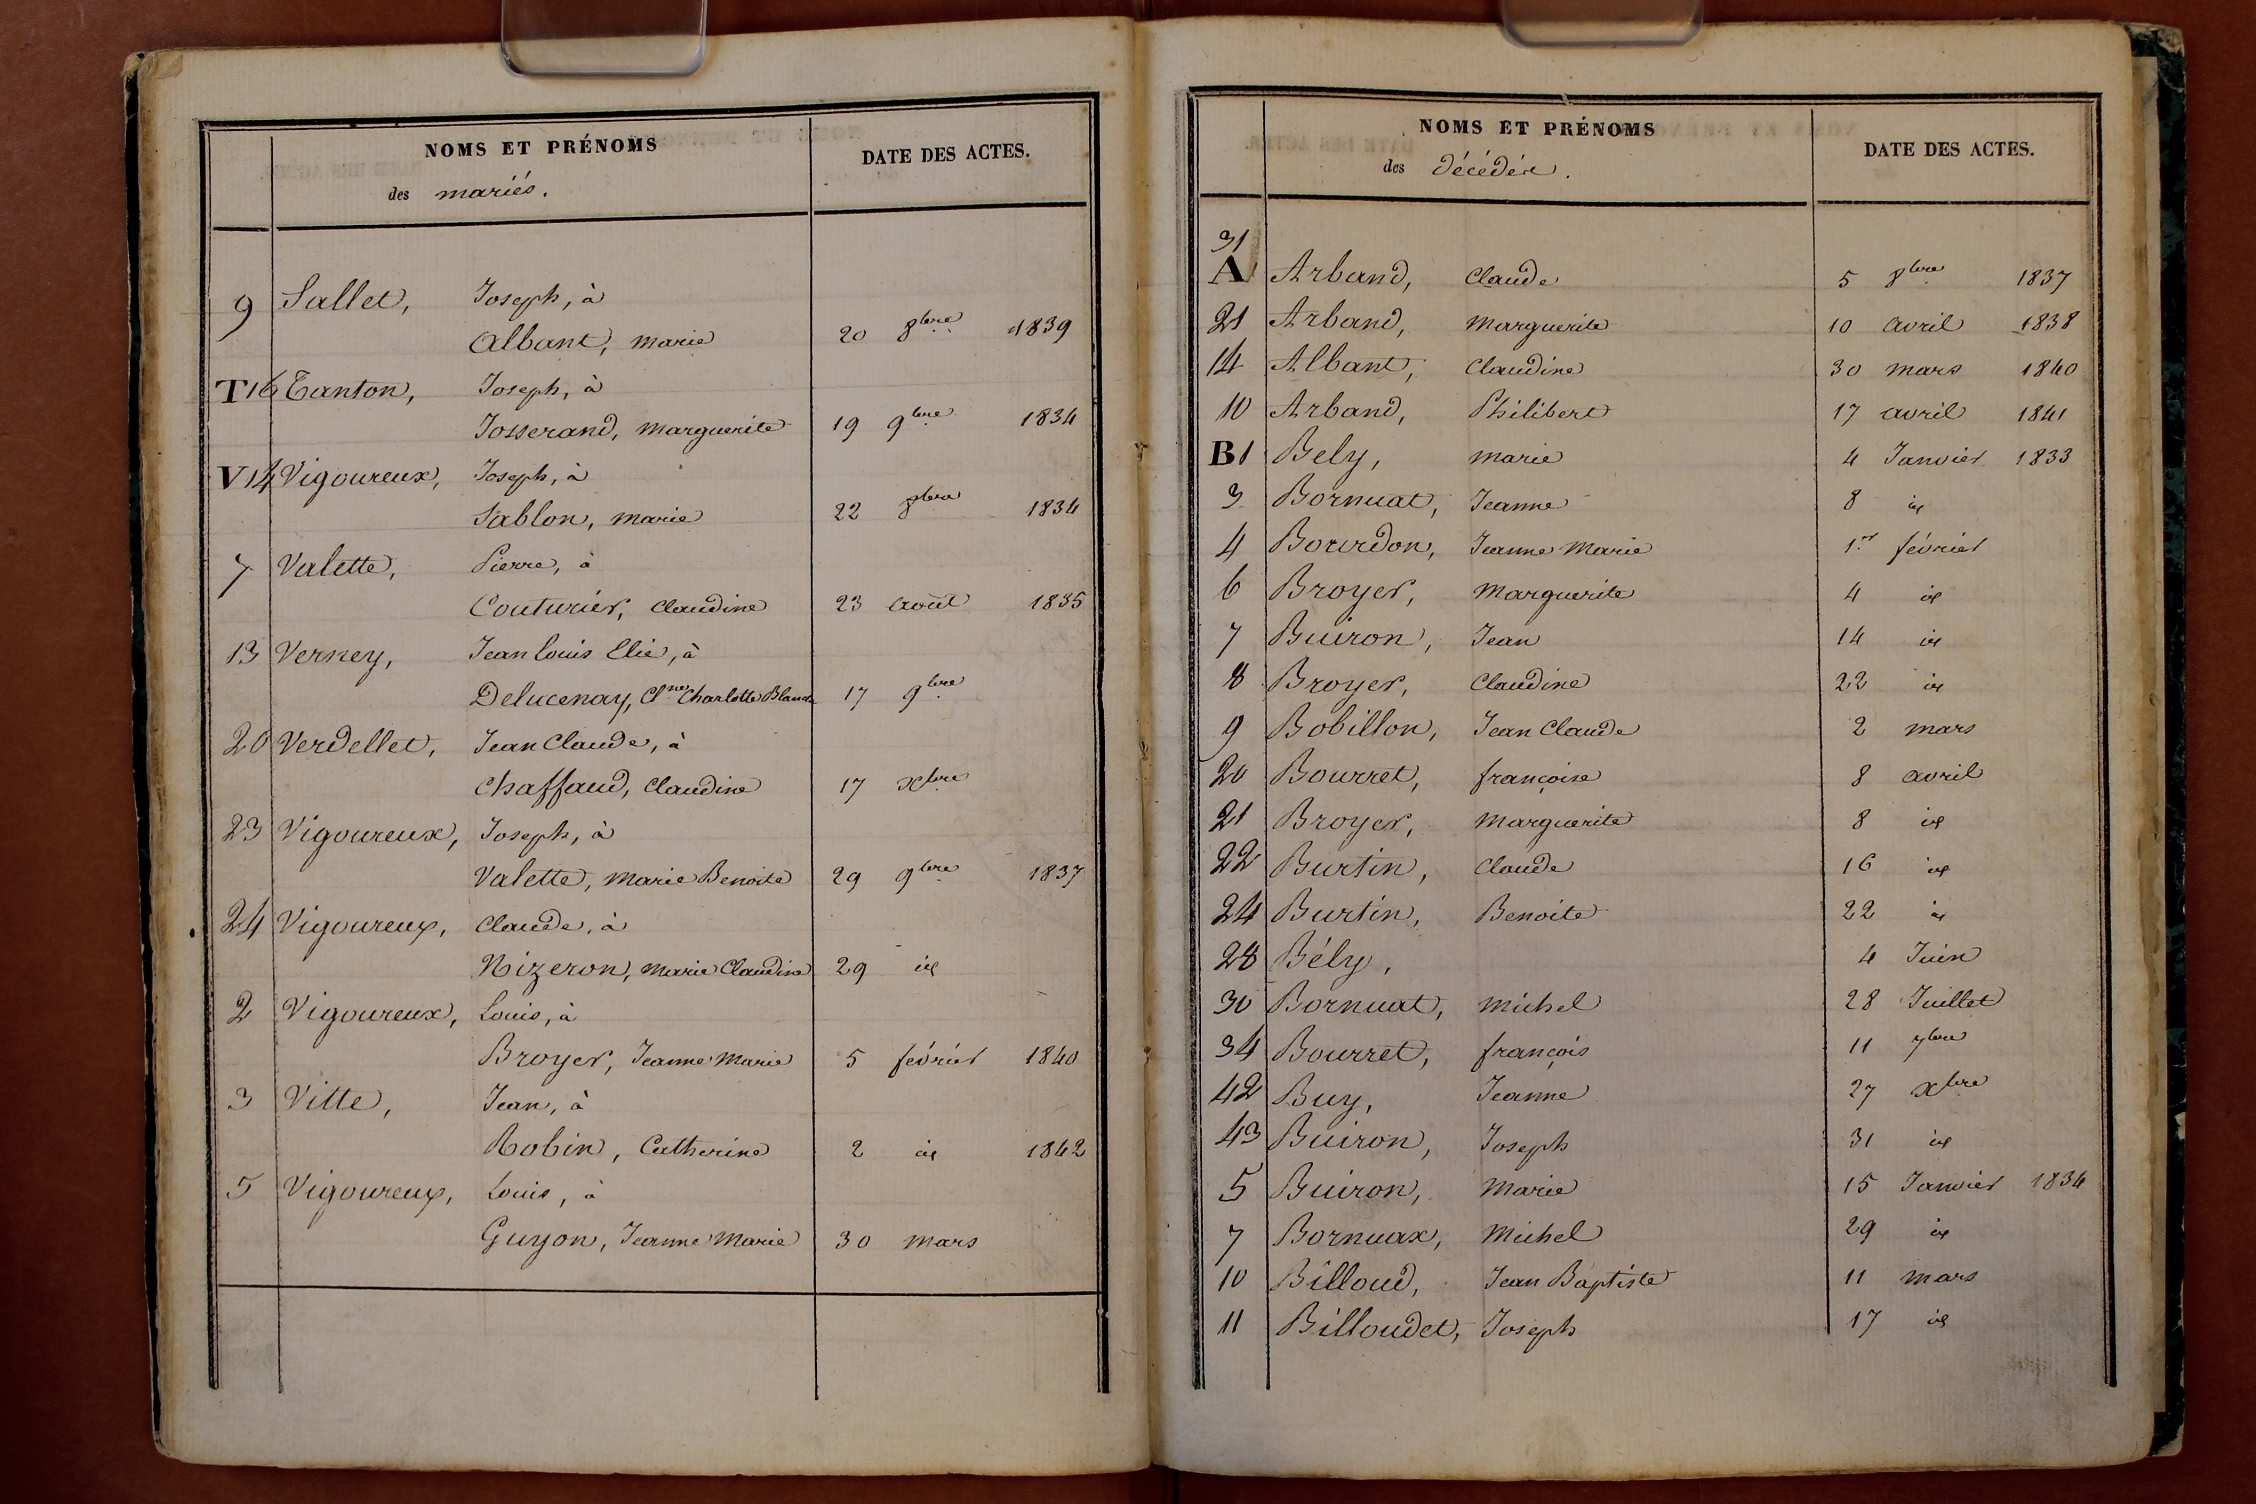 NOMS ET PRÉNOMS
des mariés.
DATE DES ACTES.
9 Sallet, Joseph, à
Albant, marie 20 8bre 1839
T 16 Tanton, Joseph, à
Josserand, marguerite 19 9bre 1834
V 14 Vigoureux, Joseph, à
Sablon, marie 22 8bre 1834
7 Valette, Pierre, à
Couturier, Claudine 23 Août 1835
13 Verney, Jean Louis Elie, à
Delucenay, Cl.ne Charlotte Blanch 17 9bre
20 Verdellet, Jean Claude, à
Chaffaud, Claudine 17 Xbre
23 Vigoureux, Joseph, à
Valette, marie Benoite 29 9bre 1837
24 Vigoureux, Claude, à
Nizeron, Marie Claudine 29 id
2 Vigoureux, Louis, à
Broyer, Jeanne Marie 5 février 1840
3 Vitte, Jean, à
Robin, Catherine 2 id 1842
5 Vigoureux, Louis, à
Guyon, Jeanne Marie 30 mars
NOMS ET PRÉNOMS
des Décédés.
DATE DES ACTES.
31
A Arband, Claude 5 8bre 1837
21 Arband, Marguerite 10 avril 1838
14 Albant, Claudine 30 mars 1840
10 Arband, Philibert 17 avril 1841
B 1 Bely, marie 4 Janvier 1833
3 Bornuat, Jeanne 8 id
4 Bourdon, Jeanne Marie 1er février
6 Broyer, Marguerite 4 id
7 Buiron, Jean 14 id
8 Broyer, Claudine 22 id
9 Bobillon, Jean Claude 2 mars
20 Bourret, françoise 8 avril
21 Broyer, Marguerite 8 id
22 Burtin, Claude 16 id
24 Burtin, Benoite 22 id
28 Bély, 4 Juin
30 Bornuat, Michel 28 Juillet
34 Bourret, françois 11 7bre
42 Buy, Jeanne 27 Xbre
43 Buiron, Joseph 31 id
5 Buiron, Marie 15 Janvier 1834
7 Bornuax, Michel 29 id
10 Billoud, Jean Baptiste 11 mars
11 Billoudet, Joseph 17 id